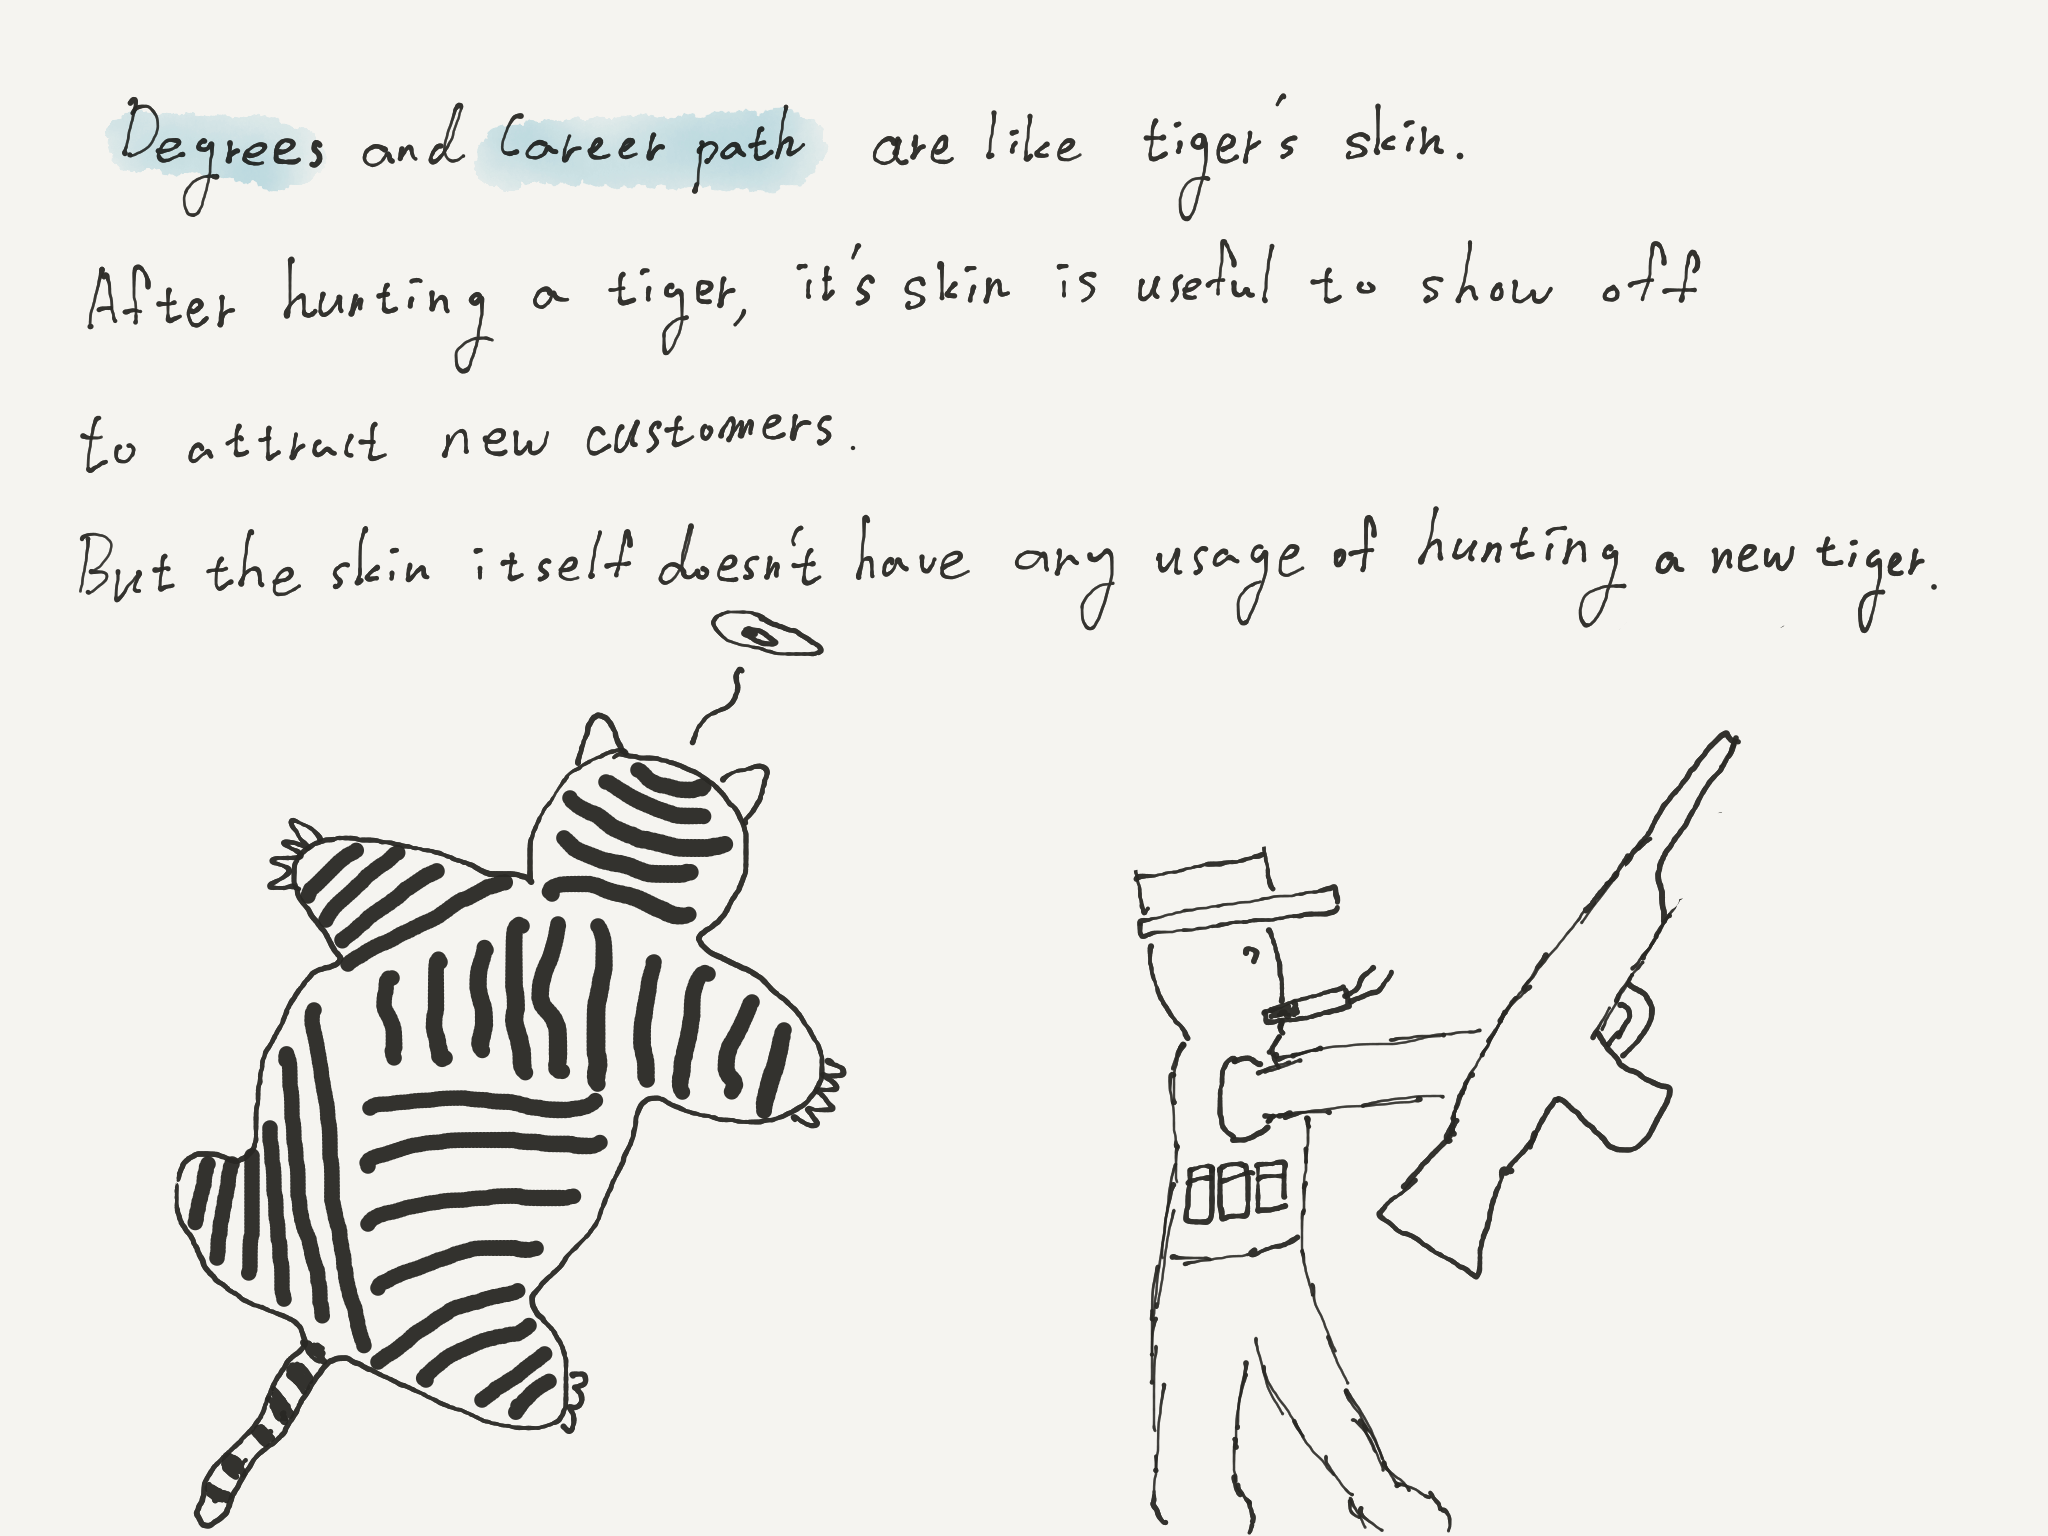 Degrees and Career path are like tiger's skin.
After hunting a tiger, it's skin is useful to show off
to attract new customers.
But the skin itself doesn't have any usage of hunting a new tiger.